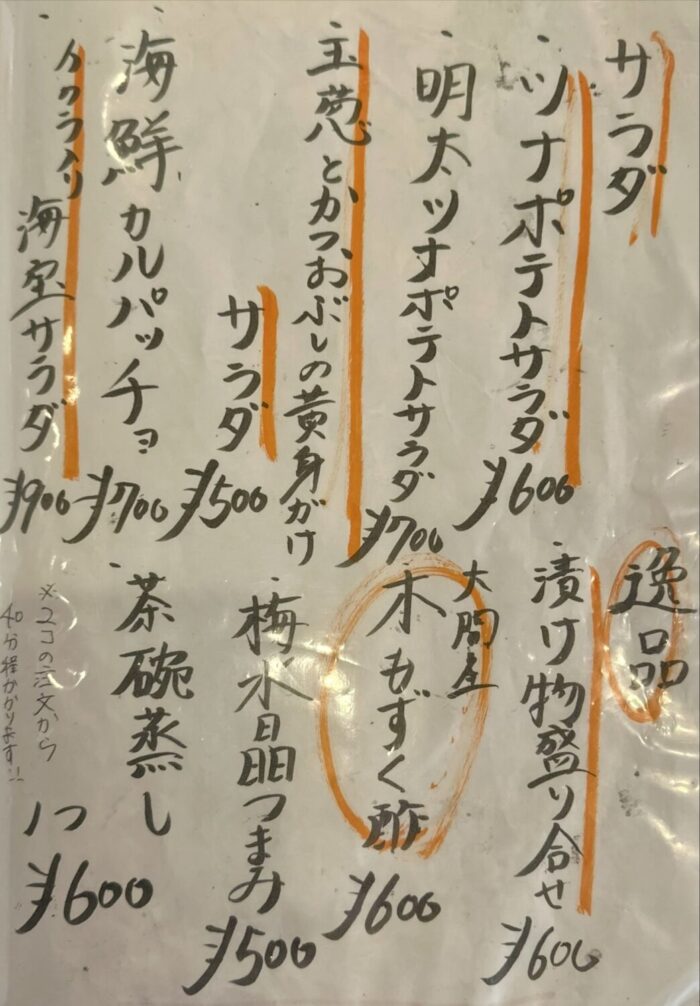 サラダ
・ツナポテトサラダ ¥600
・明太ツナポテトサラダ ¥700
・玉葱とかつおぶしの黄身がけ
サラダ ¥500
・海鮮カルパッチョ ¥700
イクラ入り
海宝サラダ ¥900
逸品
・漬け物盛り合せ ¥600
大間産
・木もずく酢 ¥600
・梅水晶つまみ ¥500
・茶碗蒸し 1つ ¥600
※2コの注文から
40分程かかります!!